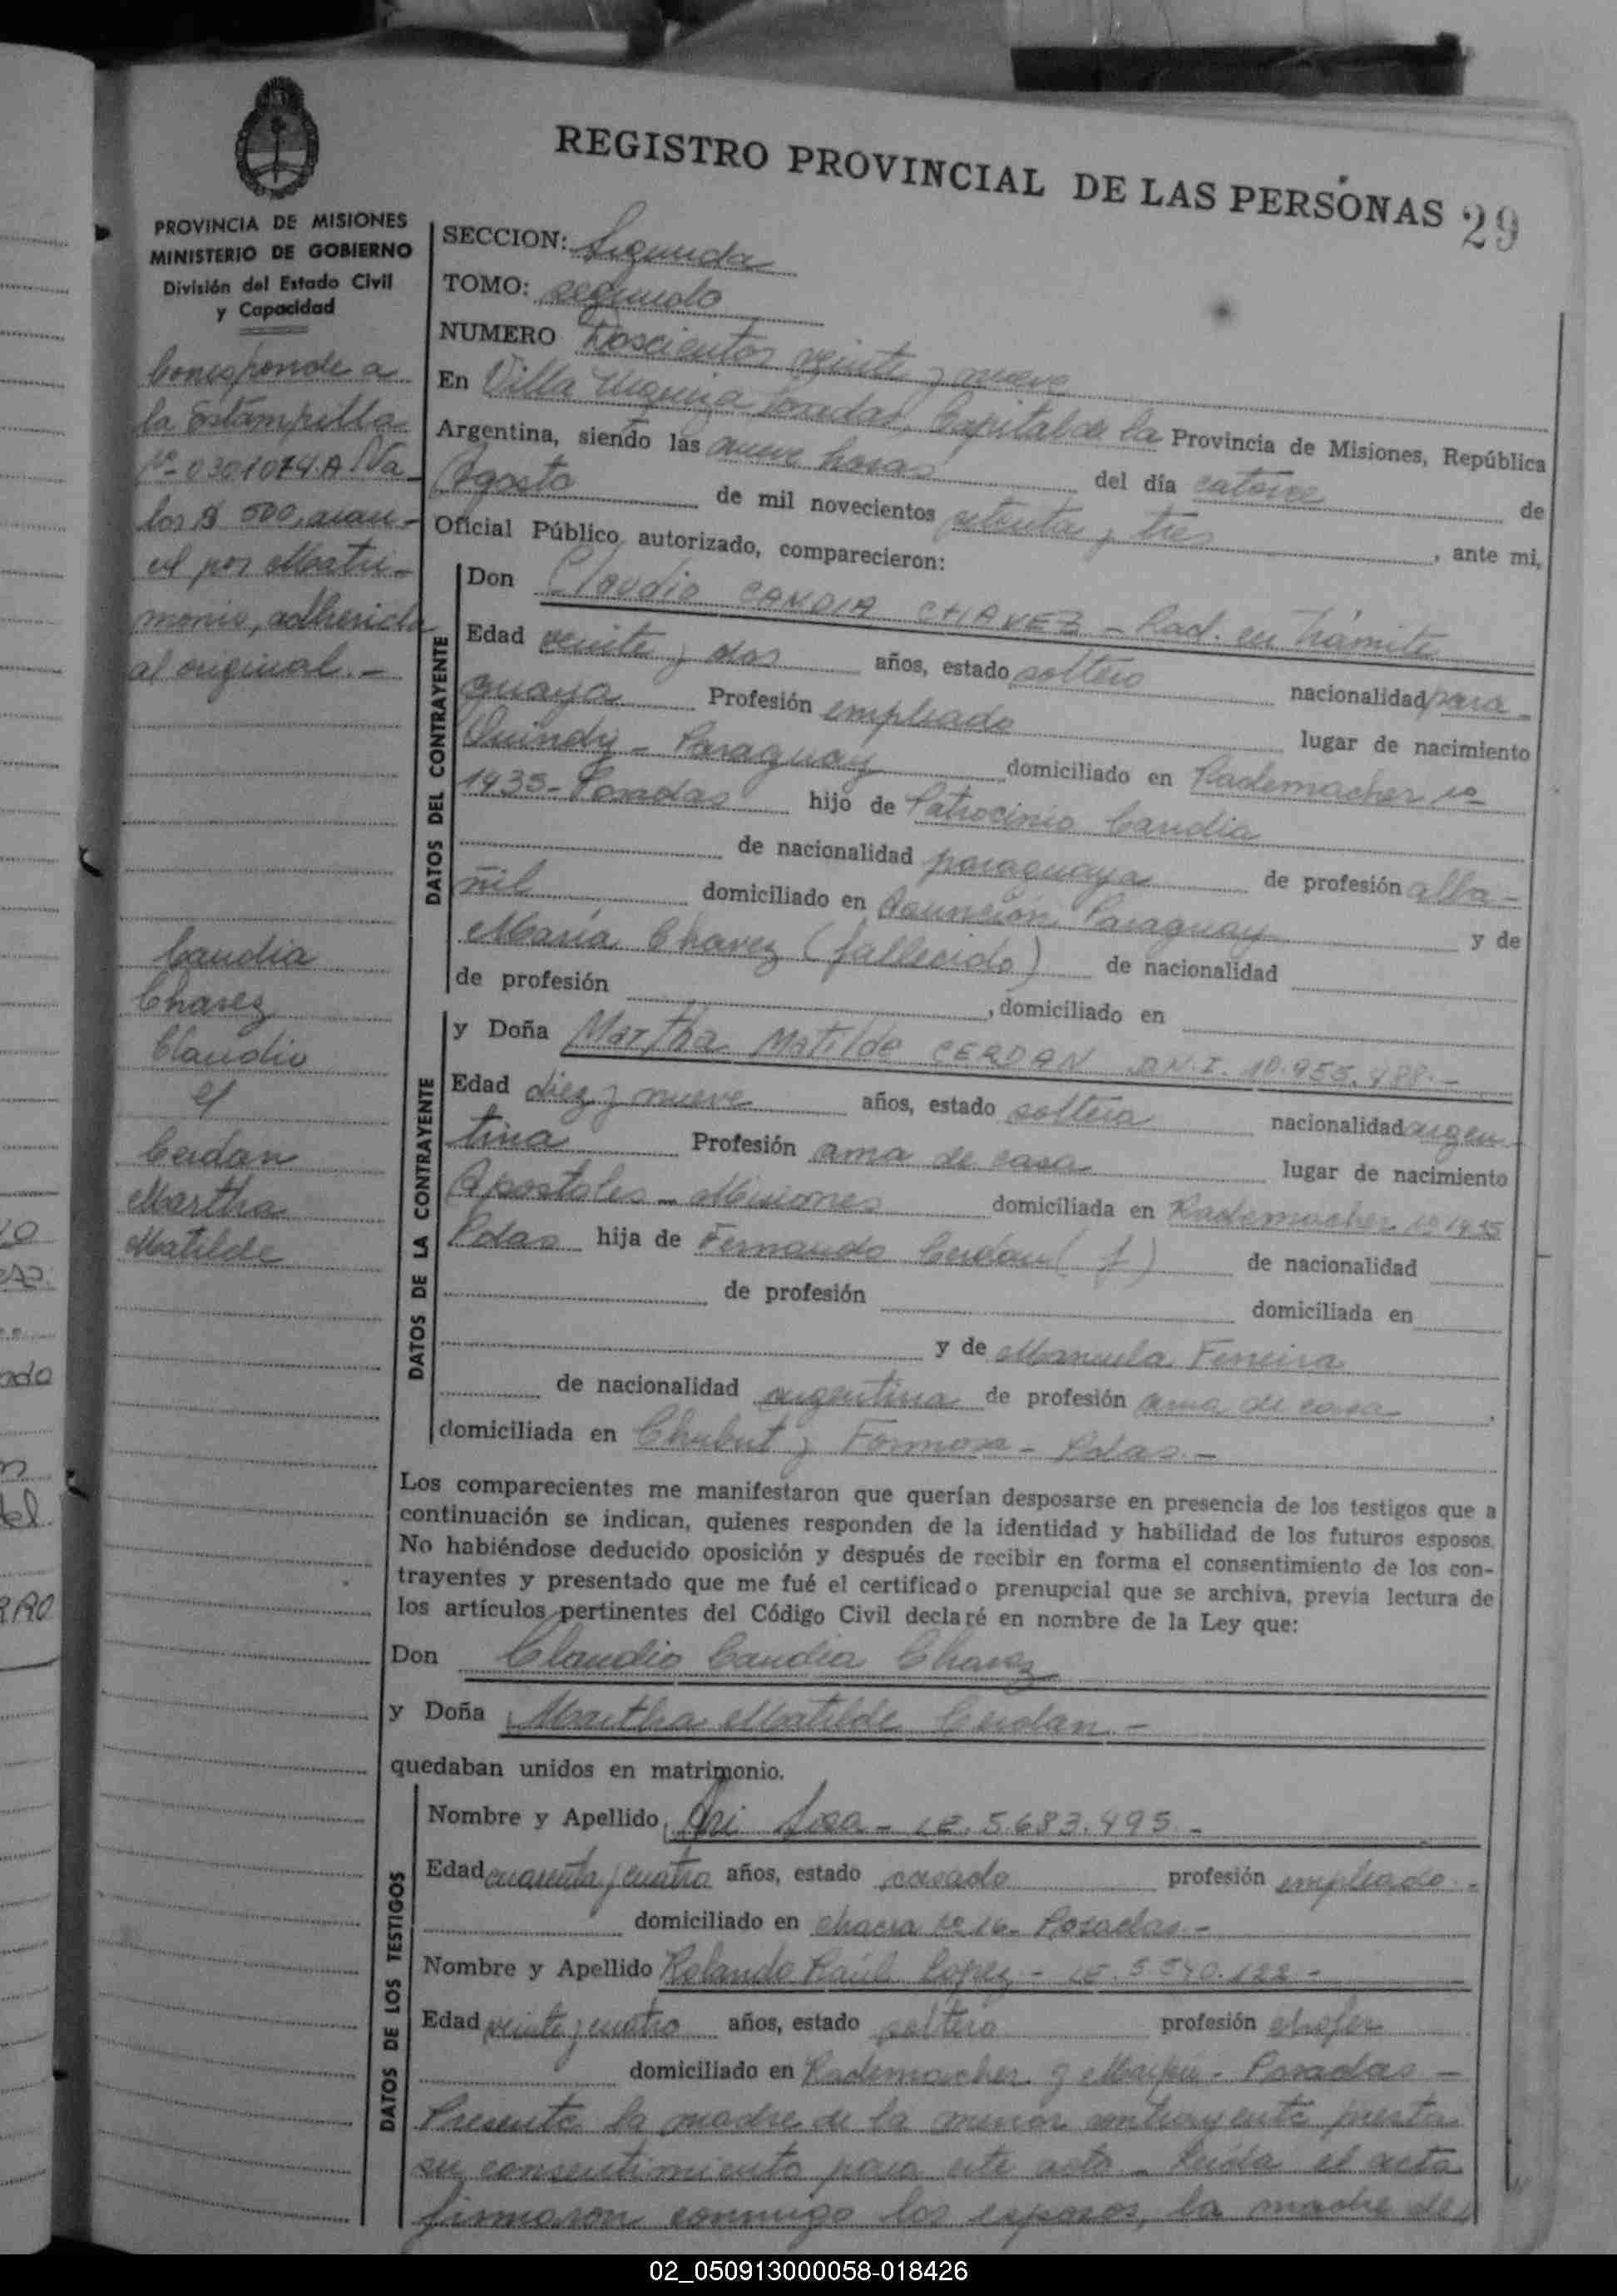 REGISTRO PROVINCIAL DE LAS PERSONAS 29
PROVINCIA DE MISIONES
MINISTERIO DE GOBIERNO
División del Estado Civil
y Capacidad
Corresponde a
la Estampilla
Nº 0301074.A Va-
lor $ 500, aran-
cel por Matri-
monio, adherida
al original.-
Candia
Chavez
Claudio
c/
Cerdan
Martha
Matilde
SECCION: Segunda
TOMO: segundo
NUMERO Doscientos veinte y nueve
En Villa Urquiza Posadas, Capital de la Provincia de Misiones, República
Argentina, siendo las nueve horas del día catorce de
Agosto de mil novecientos setenta y tres, ante mi,
Oficial Público autorizado, comparecieron:
DATOS DEL CONTRAYENTE
Don Claudio CANDIA CHAVEZ - Rad. en Trámite
Edad veinte y dos años, estado soltero nacionalidad para-
guaya Profesión empleado lugar de nacimiento
Quindy - Paraguay domiciliado en Rademacher nº
1935- Posadas hijo de Patrocinio Candia
de nacionalidad paraguaya de profesión alba-
ñil domiciliado en Asunción Paraguay y de
María Chavez (fallecido) de nacionalidad
de profesión , domiciliado en
DATOS DE LA CONTRAYENTE
y Doña Martha Matilde CERDAN D.N.I. 10.955.488.-
Edad diez y nueve años, estado soltera nacionalidad argen-
tina Profesión ama de casa lugar de nacimiento
Apostoles - Misiones domiciliada en Rademacher nº 1935
Pdas hija de Fernando Cerdan (f) de nacionalidad
de profesión domiciliada en
y de Manuela Ferreira
de nacionalidad argentina de profesión ama de casa,
domiciliada en Chubut y Formosa - Pdas.-
Los comparecientes me manifestaron que querían desposarse en presencia de los testigos que a
continuación se indican, quienes responden de la identidad y habilidad de los futuros esposos.
No habiéndose deducido oposición y después de recibir en forma el consentimiento de los con-
trayentes y presentado que me fué el certificado prenupcial que se archiva, previa lectura de
los artículos pertinentes del Código Civil declaré en nombre de la Ley que:
Don Claudio Candia Chavez
y Doña Martha Matilde Cerdan.-
quedaban unidos en matrimonio.
DATOS DE LOS TESTIGOS
Nombre y Apellido Ari Sosa - L.E. 5.683.495.-
Edad cuarenta y cuatro años, estado casado profesión empleado.-
domiciliado en chacra nº 16- Posadas.-
Nombre y Apellido Rolando Raúl Lopez - L.E. 5.540.122-
Edad veinte y cuatro años, estado soltero profesión chofer
domiciliado en Rademacher y Maipú - Posadas -
Presente la madre de la menor contrayente presta
su consentimiento para este acto - Leída el acta
firmaron conmigo los esposos, la madre de
02_050913000058-018426